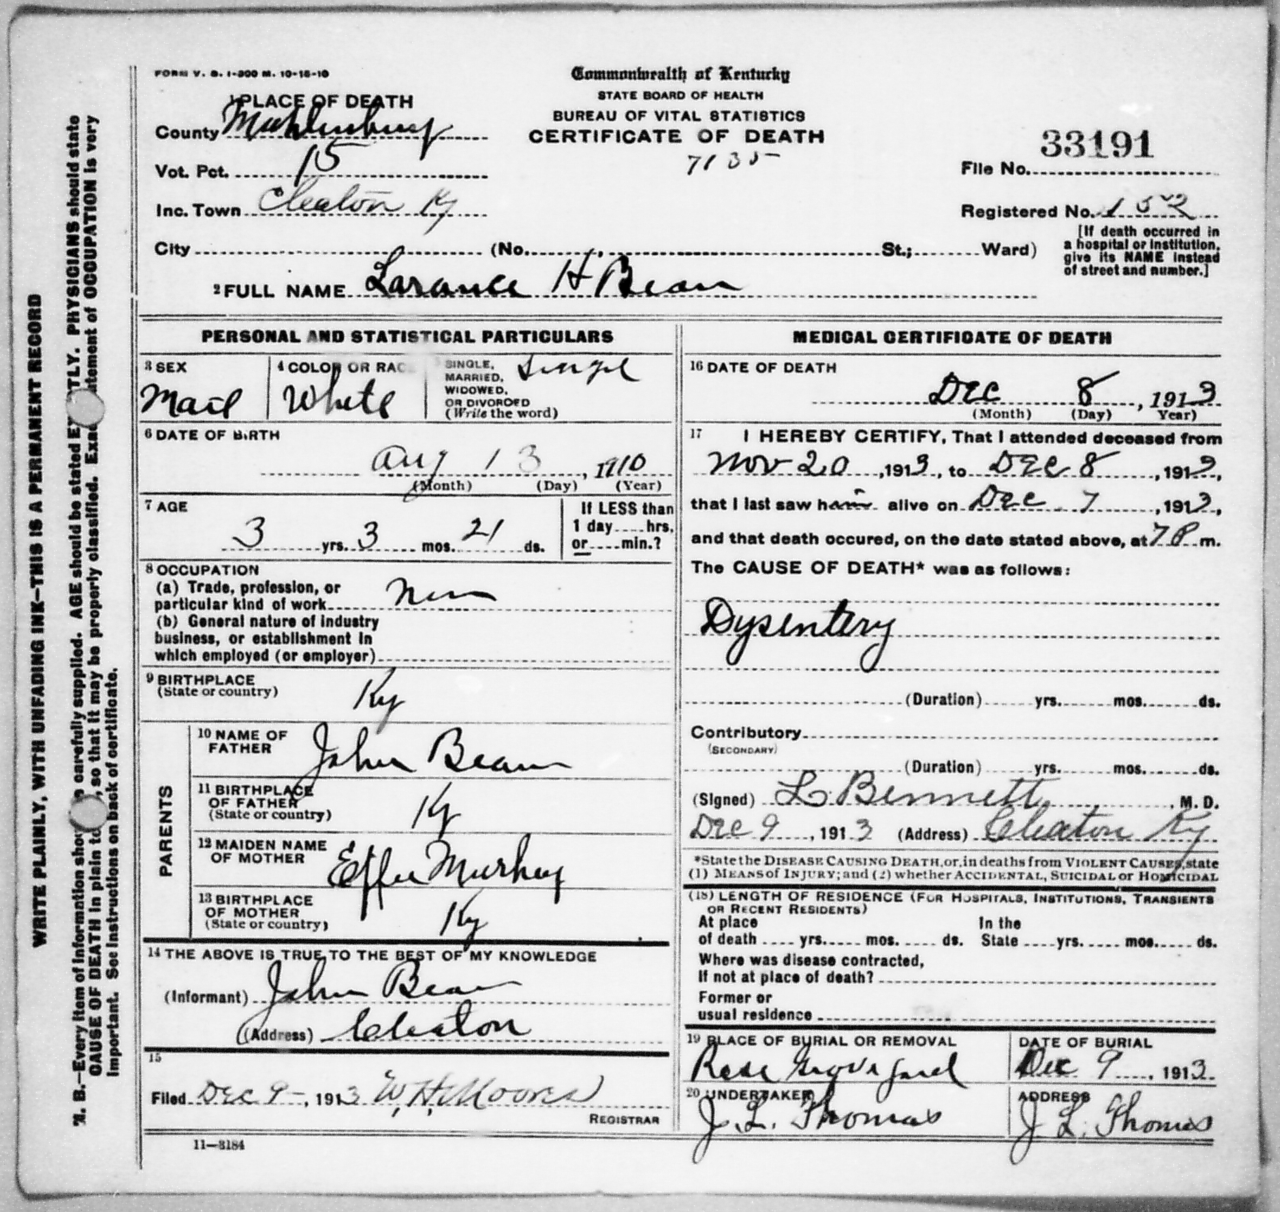 FORM V. S. 1-300 M. 10-15-10
Commonwealth of Kentucky
STATE BOARD OF HEALTH
BUREAU OF VITAL STATISTICS
CERTIFICATE OF DEATH
7135
1 PLACE OF DEATH
County Muhlenburg
Vot. Pct. 15
Inc. Town Cleaton Ky
City (No. St.; Ward)
33191
File No.
Registered No. 152
[If death occurred in
a hospital or institution,
give its NAME instead
of street and number.]
2 FULL NAME Larance H Bean
PERSONAL AND STATISTICAL PARTICULARS
3 SEX
Mail
4 COLOR OR RAC
White
SINGLE,
MARRIED,
WIDOWED,
OR DIVORCED
(Write the word)
Singel
6 DATE OF BIRTH
Aug 13, 1910
(Month) (Day) (Year)
7 AGE
3 yrs. 3 mos. 21 ds.
If LESS than
1 day hrs.
or min.?
8 OCCUPATION
(a) Trade, profession, or
particular kind of work
(b) General nature of industry
business, or establishment in
which employed (or employer)
9 BIRTHPLACE
(State or country)
Ky
PARENTS
10 NAME OF
FATHER
John Bean
11 BIRTHPLACE
OF FATHER
(State or country)
Ky
12 MAIDEN NAME
OF MOTHER
Effie
13 BIRTHPLACE
OF MOTHER
(State or country)
Ky
14 THE ABOVE IS TRUE TO THE BEST OF MY KNOWLEDGE
(Informant) John Bean
(Address) Cleaton
15
Filed Dec 9, 1913 W. H. Moores
REGISTRAR
11—3184
MEDICAL CERTIFICATE OF DEATH
16 DATE OF DEATH
Dec 8, 1913
(Month) (Day) Year)
17 I HEREBY CERTIFY, That I attended deceased from
Nov 20, 1913, to Dec 8, 1913,
that I last saw him alive on Dec 7, 1913,
and that death occured, on the date stated above, at 7 P m.
The CAUSE OF DEATH* was as follows:
Dysentery
(Duration) yrs. mos. ds.
Contributory
(SECONDARY)
(Duration) yrs. mos. ds.
(Signed) L. Bennett, M. D.
Dec 9, 1913 (Address) Cleaton Ky
*State the DISEASE CAUSING DEATH, or, in deaths from VIOLENT CAUSES, state
(1) MEANS of INJURY; and (2) whether ACCIDENTAL, SUICIDAL or HOMICIDAL
(18) LENGTH OF RESIDENCE (FOR HOSPITALS, INSTITUTIONS, TRANSIENTS
OR RECENT RESIDENTS)
At place In the
of death yrs. mos. ds. State yrs. mos. ds.
Where was disease contracted,
If not at place of death?
Former or
usual residence
19 PLACE OF BURIAL OR REMOVAL
Rose
DATE OF BURIAL
Dec 9, 1913
20 UNDERTAKER
J. L. Thomas
ADDRESS
J. L. Thomas
WRITE PLAINLY, WITH UNFADING INK—THIS IS A PERMANENT RECORD
N. B.—Every item of information sho e carefully supplied. AGE should be stated E TLY. PHYSICIANS should state
CAUSE OF DEATH in plain te , so that it may be properly classified. Exa atement of OCCUPATION is very
important. See instructions on back of certificate.